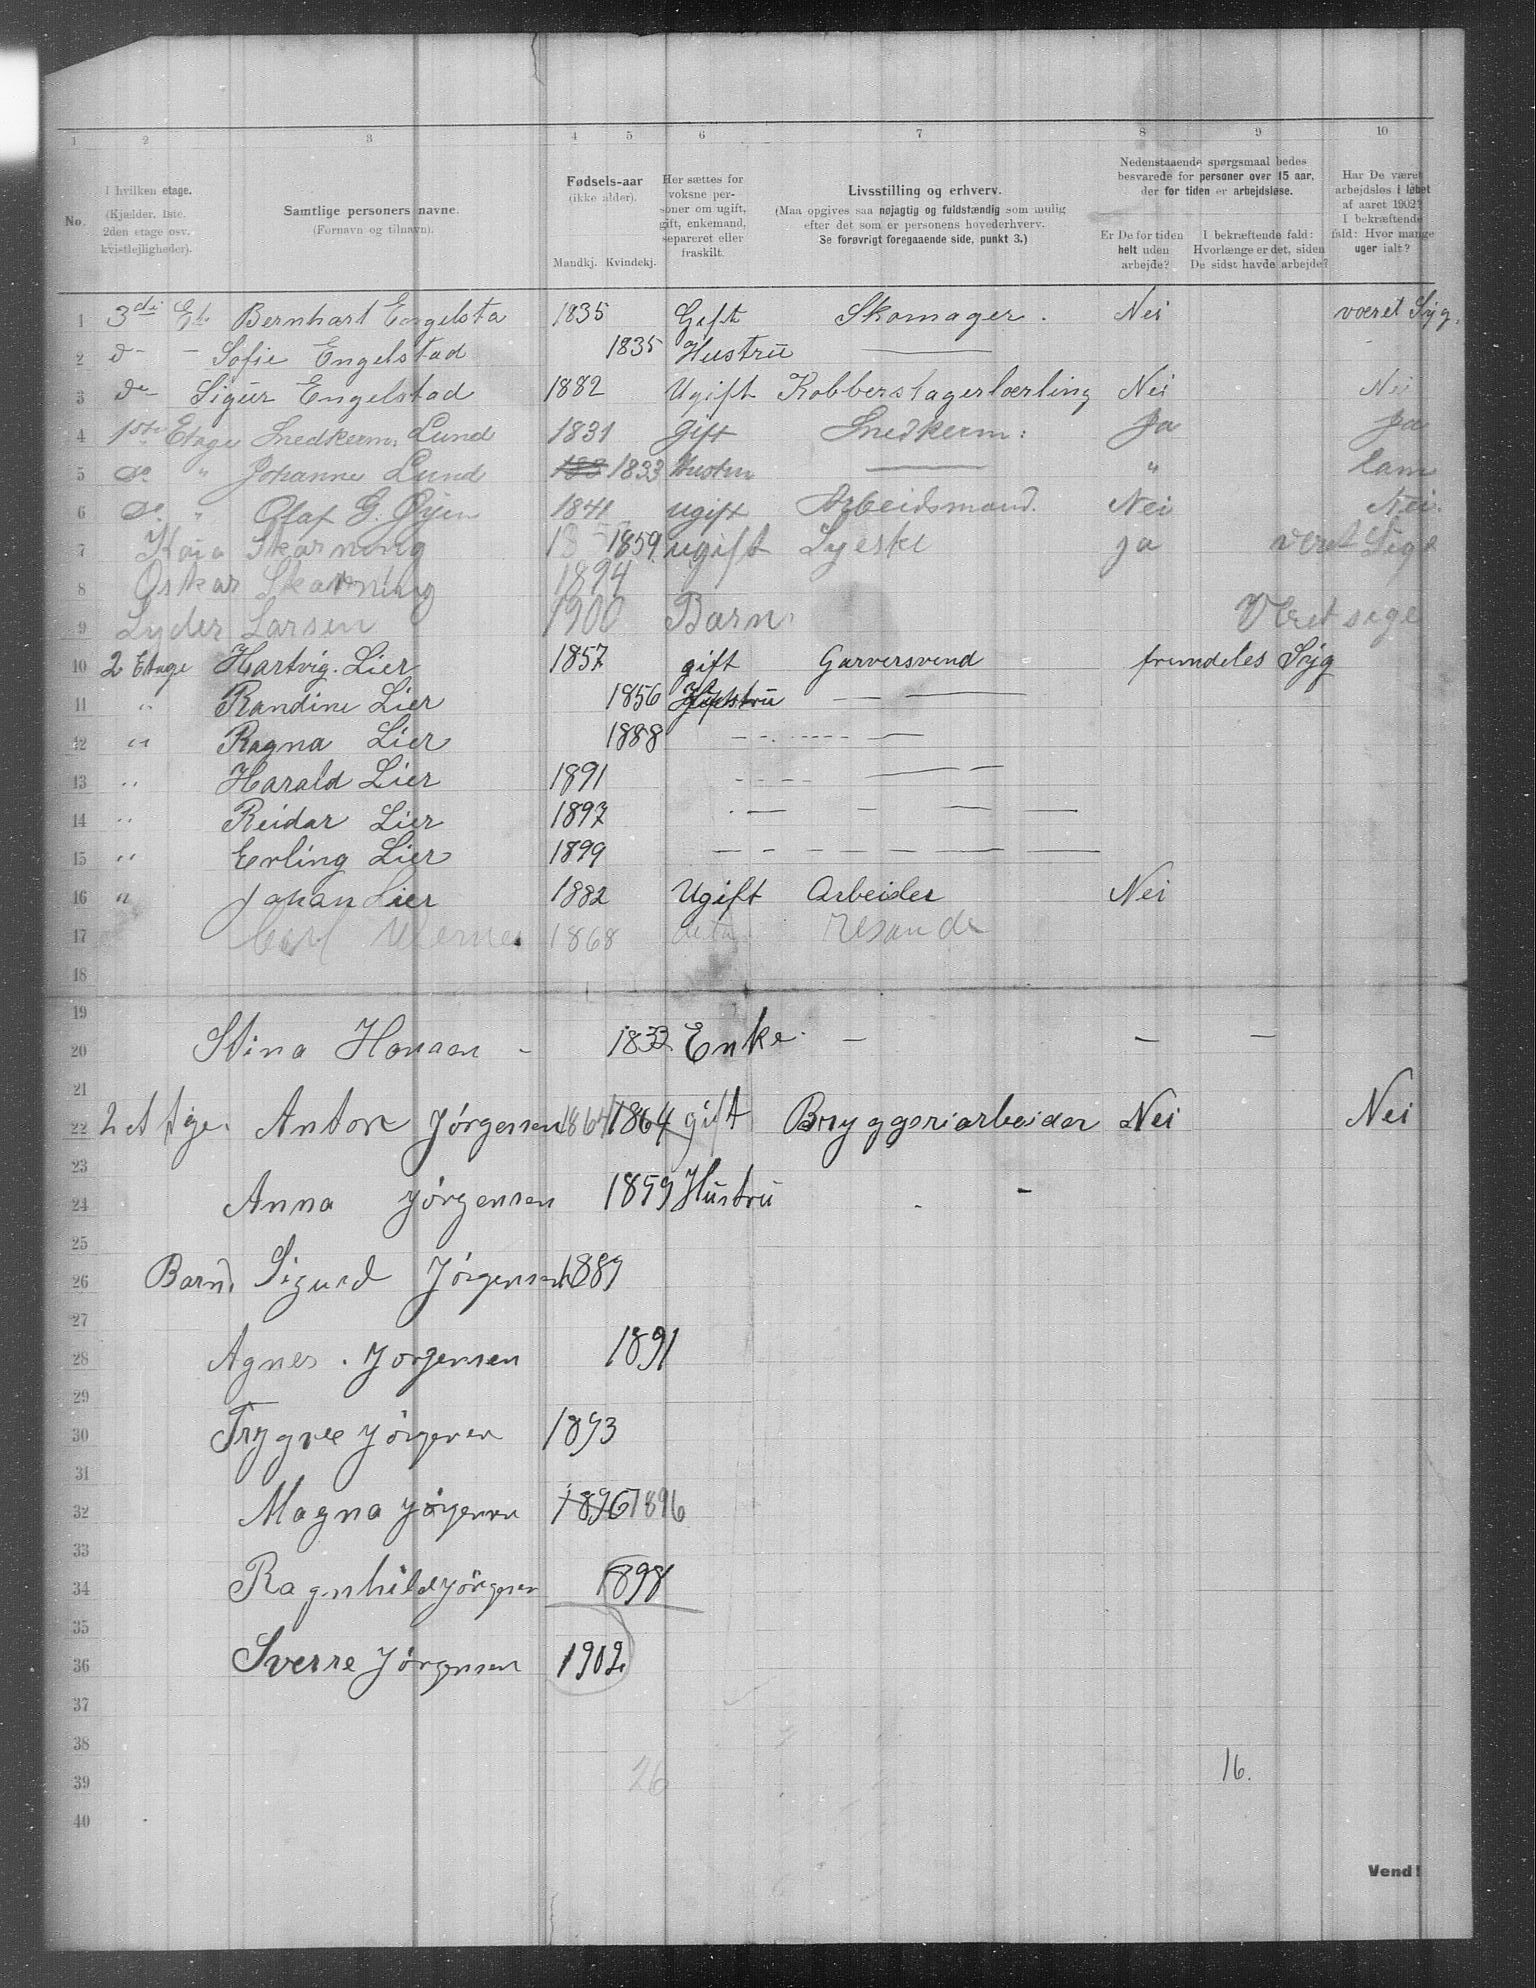 1 2 3 4 5 6 7 8 9 10
No.
I hvilken etage.
(Kjælder, 1ste, 2den etage osv. kvistlejligheder).
Samtlige personers navne.
(Fornavn og tilnavn).
Fødsels-aar
(ikke alder).
Mandkj. Kvindekj.
Her sættes for voksne personer om ugift, gift, enkemand, separeret eller fraskilt.
Livsstilling og erhverv.
(Maa opgives saa nøjagtig og fuldstændig som mulig efter det som er personens hovederhverv.
Se forøvrigt foregaaende side, punkt 3.)
Nedenstaaende spørgsmaal bedes besvarede for personer over 15 aar, der for tiden er arbejdsløse.
Er De for tiden helt uden arbejde?
I bekræftende fald: Hvorlænge er det, siden De sidst havde arbejde?
Har De været arbejdsløs i løbet af aaret 1902? I bekræftende fald: Hvor mange uger ialt?
1 3die Et. Bernhart Engelsta 1835 Gift Skomager. Nei været Syg.
2 do - Sofie Engelstad 1835 Hustrü
3 do Sigür Engelstad 1882 Ugift Kobberslagerlærling Nei Nei
4 1ste Etage Snedkerm. Lund 1831 Gift Snedkerm: Ja Ja
5 do " Johanne Lund 1833 Hustru " lam
6 do " Olaf G. Øyen 1841 ugift Arbeidsmand. Nei Nei.
7 Kaia Skarning 1859 ugift Syeske ja veret Sige
8 Oskar Skarning 1894
9 Lyder Larsen 1900 Barn Veret sege
10 2 Etage Hartvig. Lier 1857 gift Garversvend fremdeles Syg
11 " Randine Lier 1856 Hustrü
12 " Ragna Lier 1888
13 " Harald Lier 1891
14 " Reidar Lier 1897
15 " Erling Lier 1899
16 " Johan Lier 1882 Ugift Arbeider Nei
17 Carl 1868 Resande
18
19
20 Stina Hansen - 1833 Enke. - - -
21
22 2 Anton Jörgensen 1864 1864 gift Bryggeriarbeider Nei Nei
23
24 Anna Jörgensen 1859 Hüstrü -
25
26 Barn. Sigurd Jörgensen 1889
27
28 Agnes. Jorgensen 1891
29
30 Trygve Jörgensen 1893
31
32 Magna Jörgensen 1896 1896
33
34 Ragnhild Jörgensen 1898
35
36 Sverre Jörgensen 1902
37
38
39 26 16.
40
Vend!